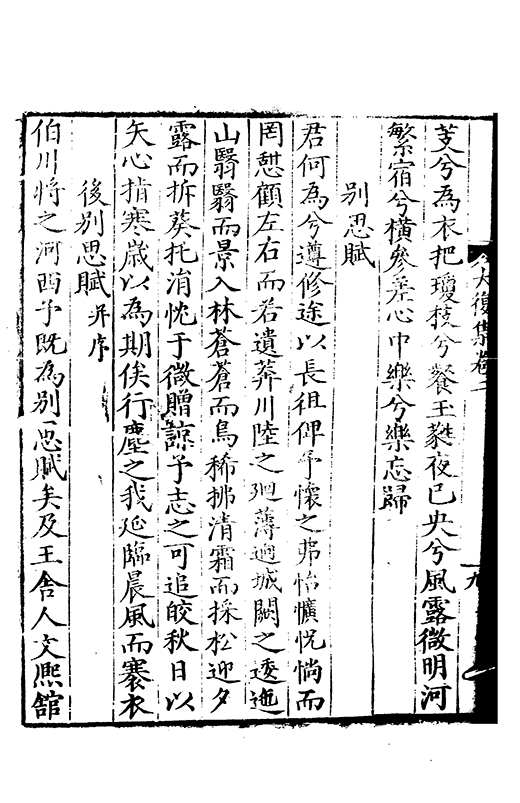 大復集卷二
九
芰兮為衣把瓊枝兮餐玉蘂夜已央兮風露微明河
繁宿兮橫參差心中樂兮樂忘歸
別思賦
君何為兮遵修途以長徂仰予懷之弗怡懭怳惝而
罔憇顧左右而若遺莽川陸之廻薄迴城闕之逶迤
山翳翳而景入林蒼蒼而鳥稀拂清霜而採松迎夕
露而折葵托消忱于微贈諒予志之可追皎秋日以
矢心指寒歲以為期俟行塵之我延臨晨風而褰衣
後別思賦并序
伯川將之河西予既為別思賦矣及王舍人文熈舘